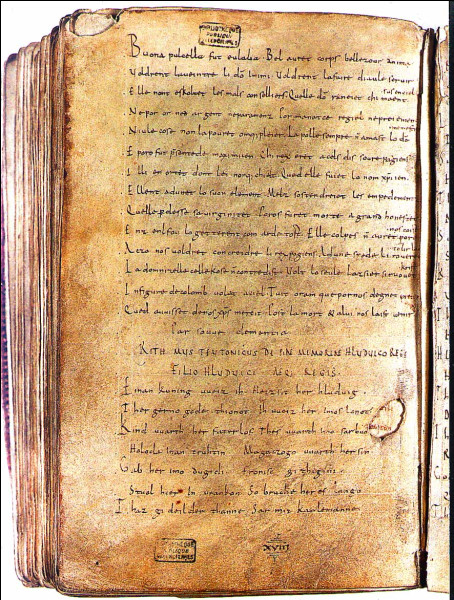 BIBLIOTHEQUE
PUBLIQUE
Buona pulcella fut eulalia. Bel auret corps bellezour anima
Voldrent la ueintre li dō inimi. Voldrent la faire diaule seruir
sus en ciel
Elle nont eskoltet les mals conselliers. Quelle dō raneiet chi maent
Ne por or ned argent ne paramenz. Por manatce regiel ne preiement
menestier
Niule cose non la pouret omq; pleier. La polle sempre n̄ amast lo dō
E poro fut p̄sentede maximiien. Chi rex eret a cels dis soure pagiens
Il li enortet dont lei nonq; chielt. Qued elle fuiet lo nom xp̄iien.
Ellent adunet lo suon element. Melz sostendreiet les empedementz
Quelle p̱desse sa uirginitet. Poros furet morte a grand honestet
nos coist
Enz enl fou lo getterent com arde tost. Elle colpes n̄ auret por o
tolir lo chieef
A czo nos uoldret concreidre li rex pagiens. Ad une spede li roueret
krist
La domnizelle celle kose n̄ contredist. Volt lo seule lazsier si ruouet
In figure de colomb uolat a ciel. Tuit oram que por nos degnet preier
Qued auuisset de nos xp̄s mercit. Post la mort & a lui nos laist uenir
Par souue clementia
RITHMUS TEUTONICUS DE PIAE MEMORIAE HLUDUICO REGE
FILIO HLUDUICI AEQ; REGIS
Einan kuning uueiz ih. Heizsit her hluduig.
Ther gerno gode thionot. Ih uueiz her imos lonot
Kind uuarth her faterlos. Thes uuarth imo sar buoz
Holoda inan truhtin. Magaczogo uuarth her sin
Gab her imo dugidi. Fronisc githigini.
Stuol hier in urankon. So bruche her es lango
Thaz gideilder thanne. Sar mit karlemanne
XVIII